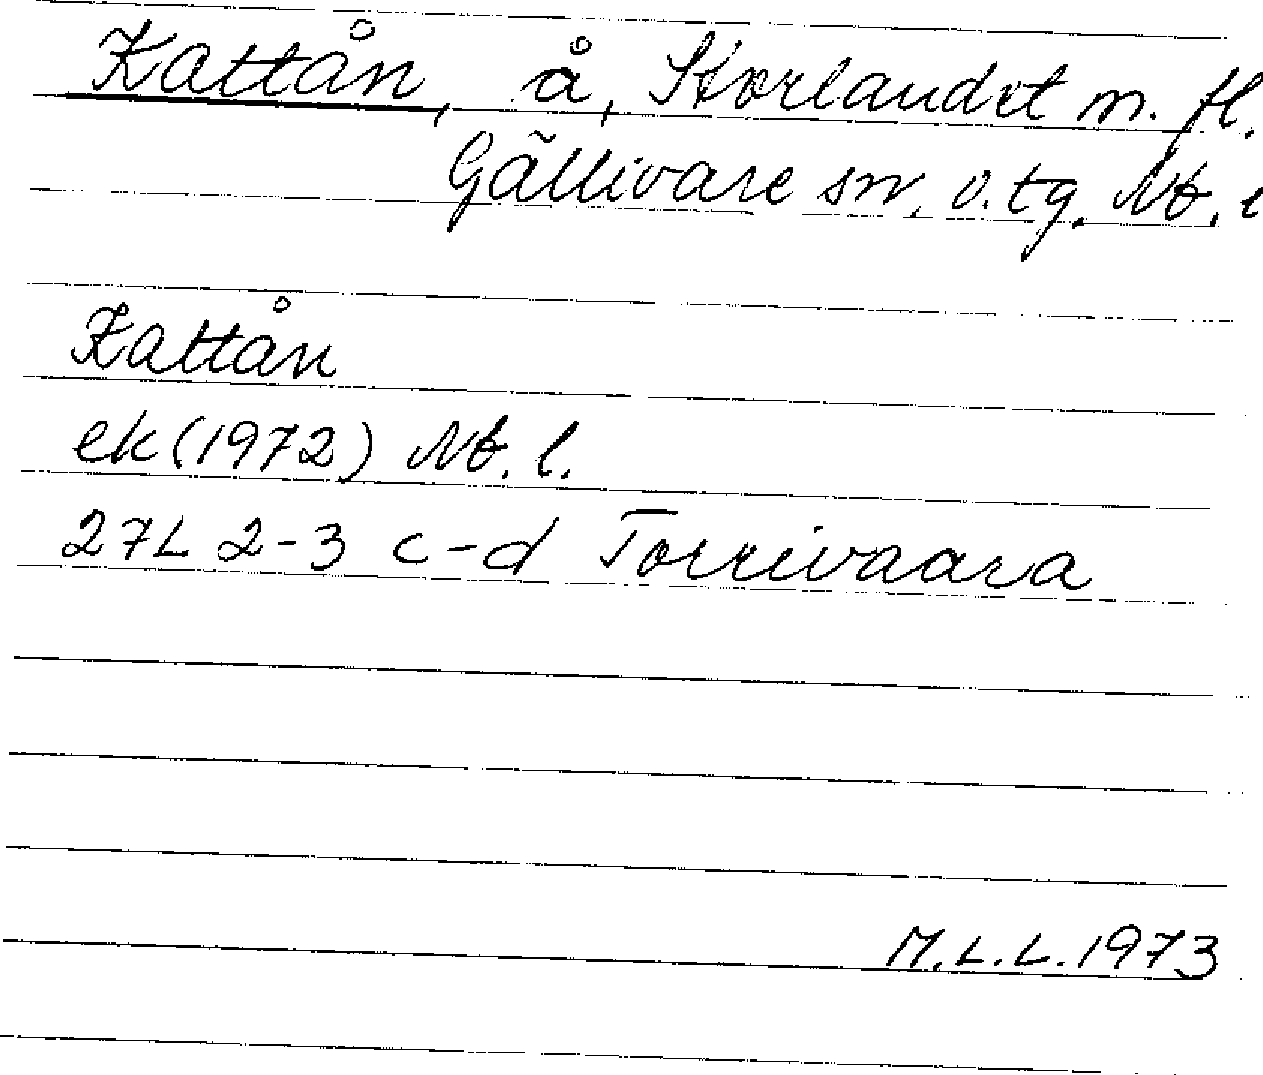 Kattån, å, Storlandet m. fl.
Gällivare sn. o. tg. Nb. l
Kattån
ek (1972) Nb. l.
27L 2-3 c-d Torrivaara
M.L.L. 1973